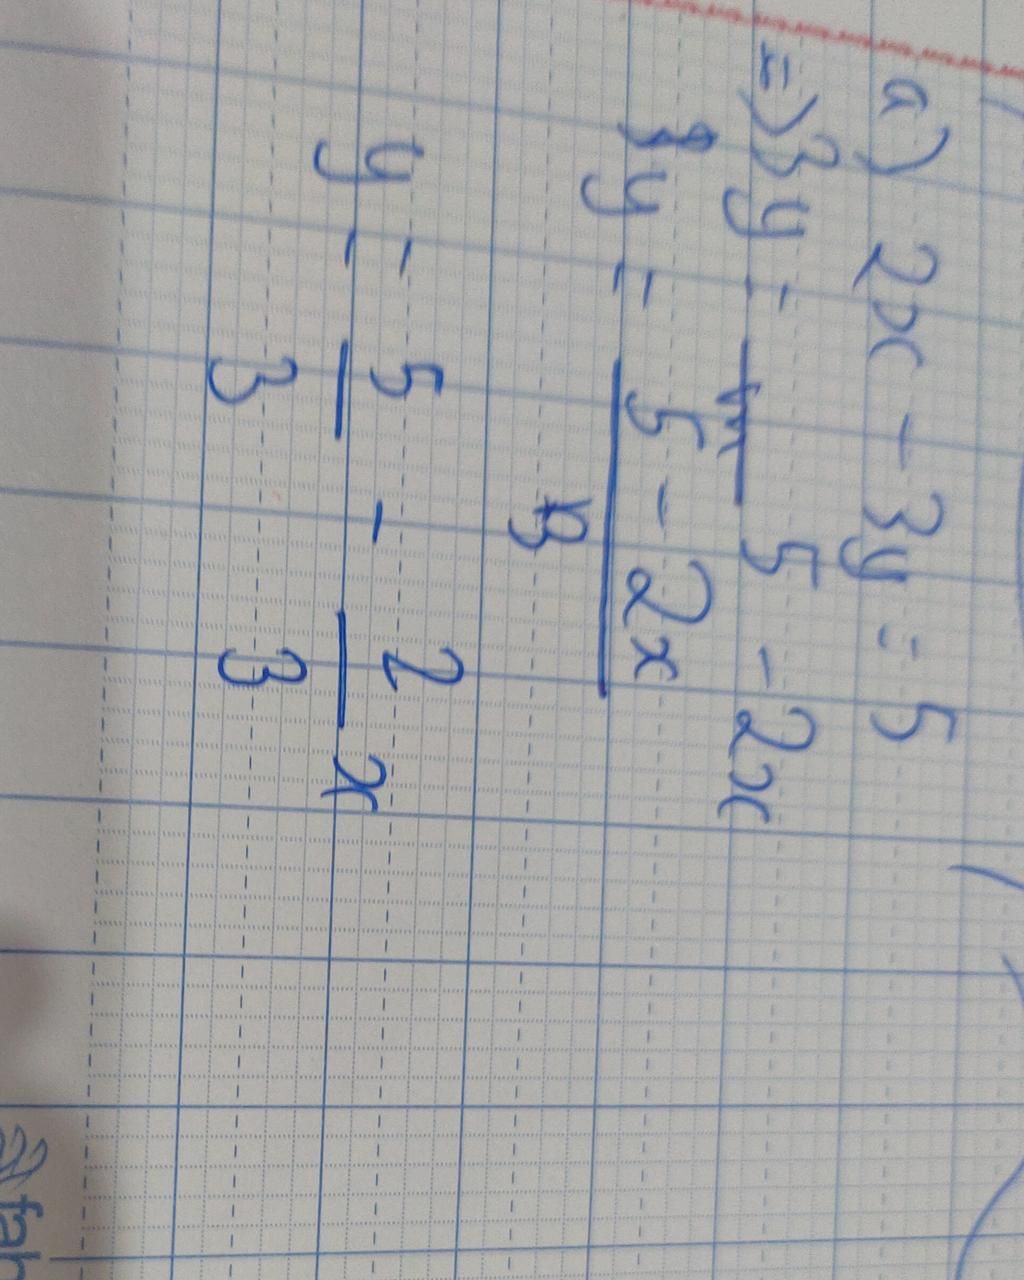 a) 2x - 3y = 5
=> 3y = 5 - 2x
y = 5 - 2x
3
y = 5/3 - 2/3 x